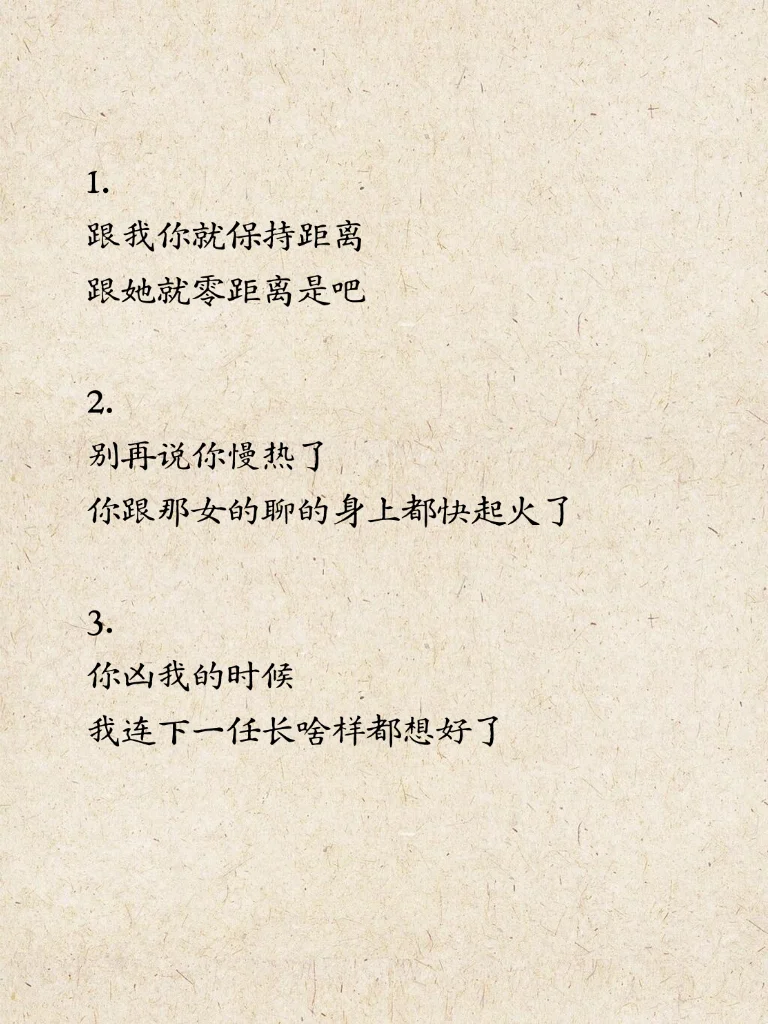 1.
跟我你就保持距离
跟她就零距离是吧
2.
别再说你慢热了
你跟那女的聊的身上都快起火了
3.
你凶我的时候
我连下一任长啥样都想好了